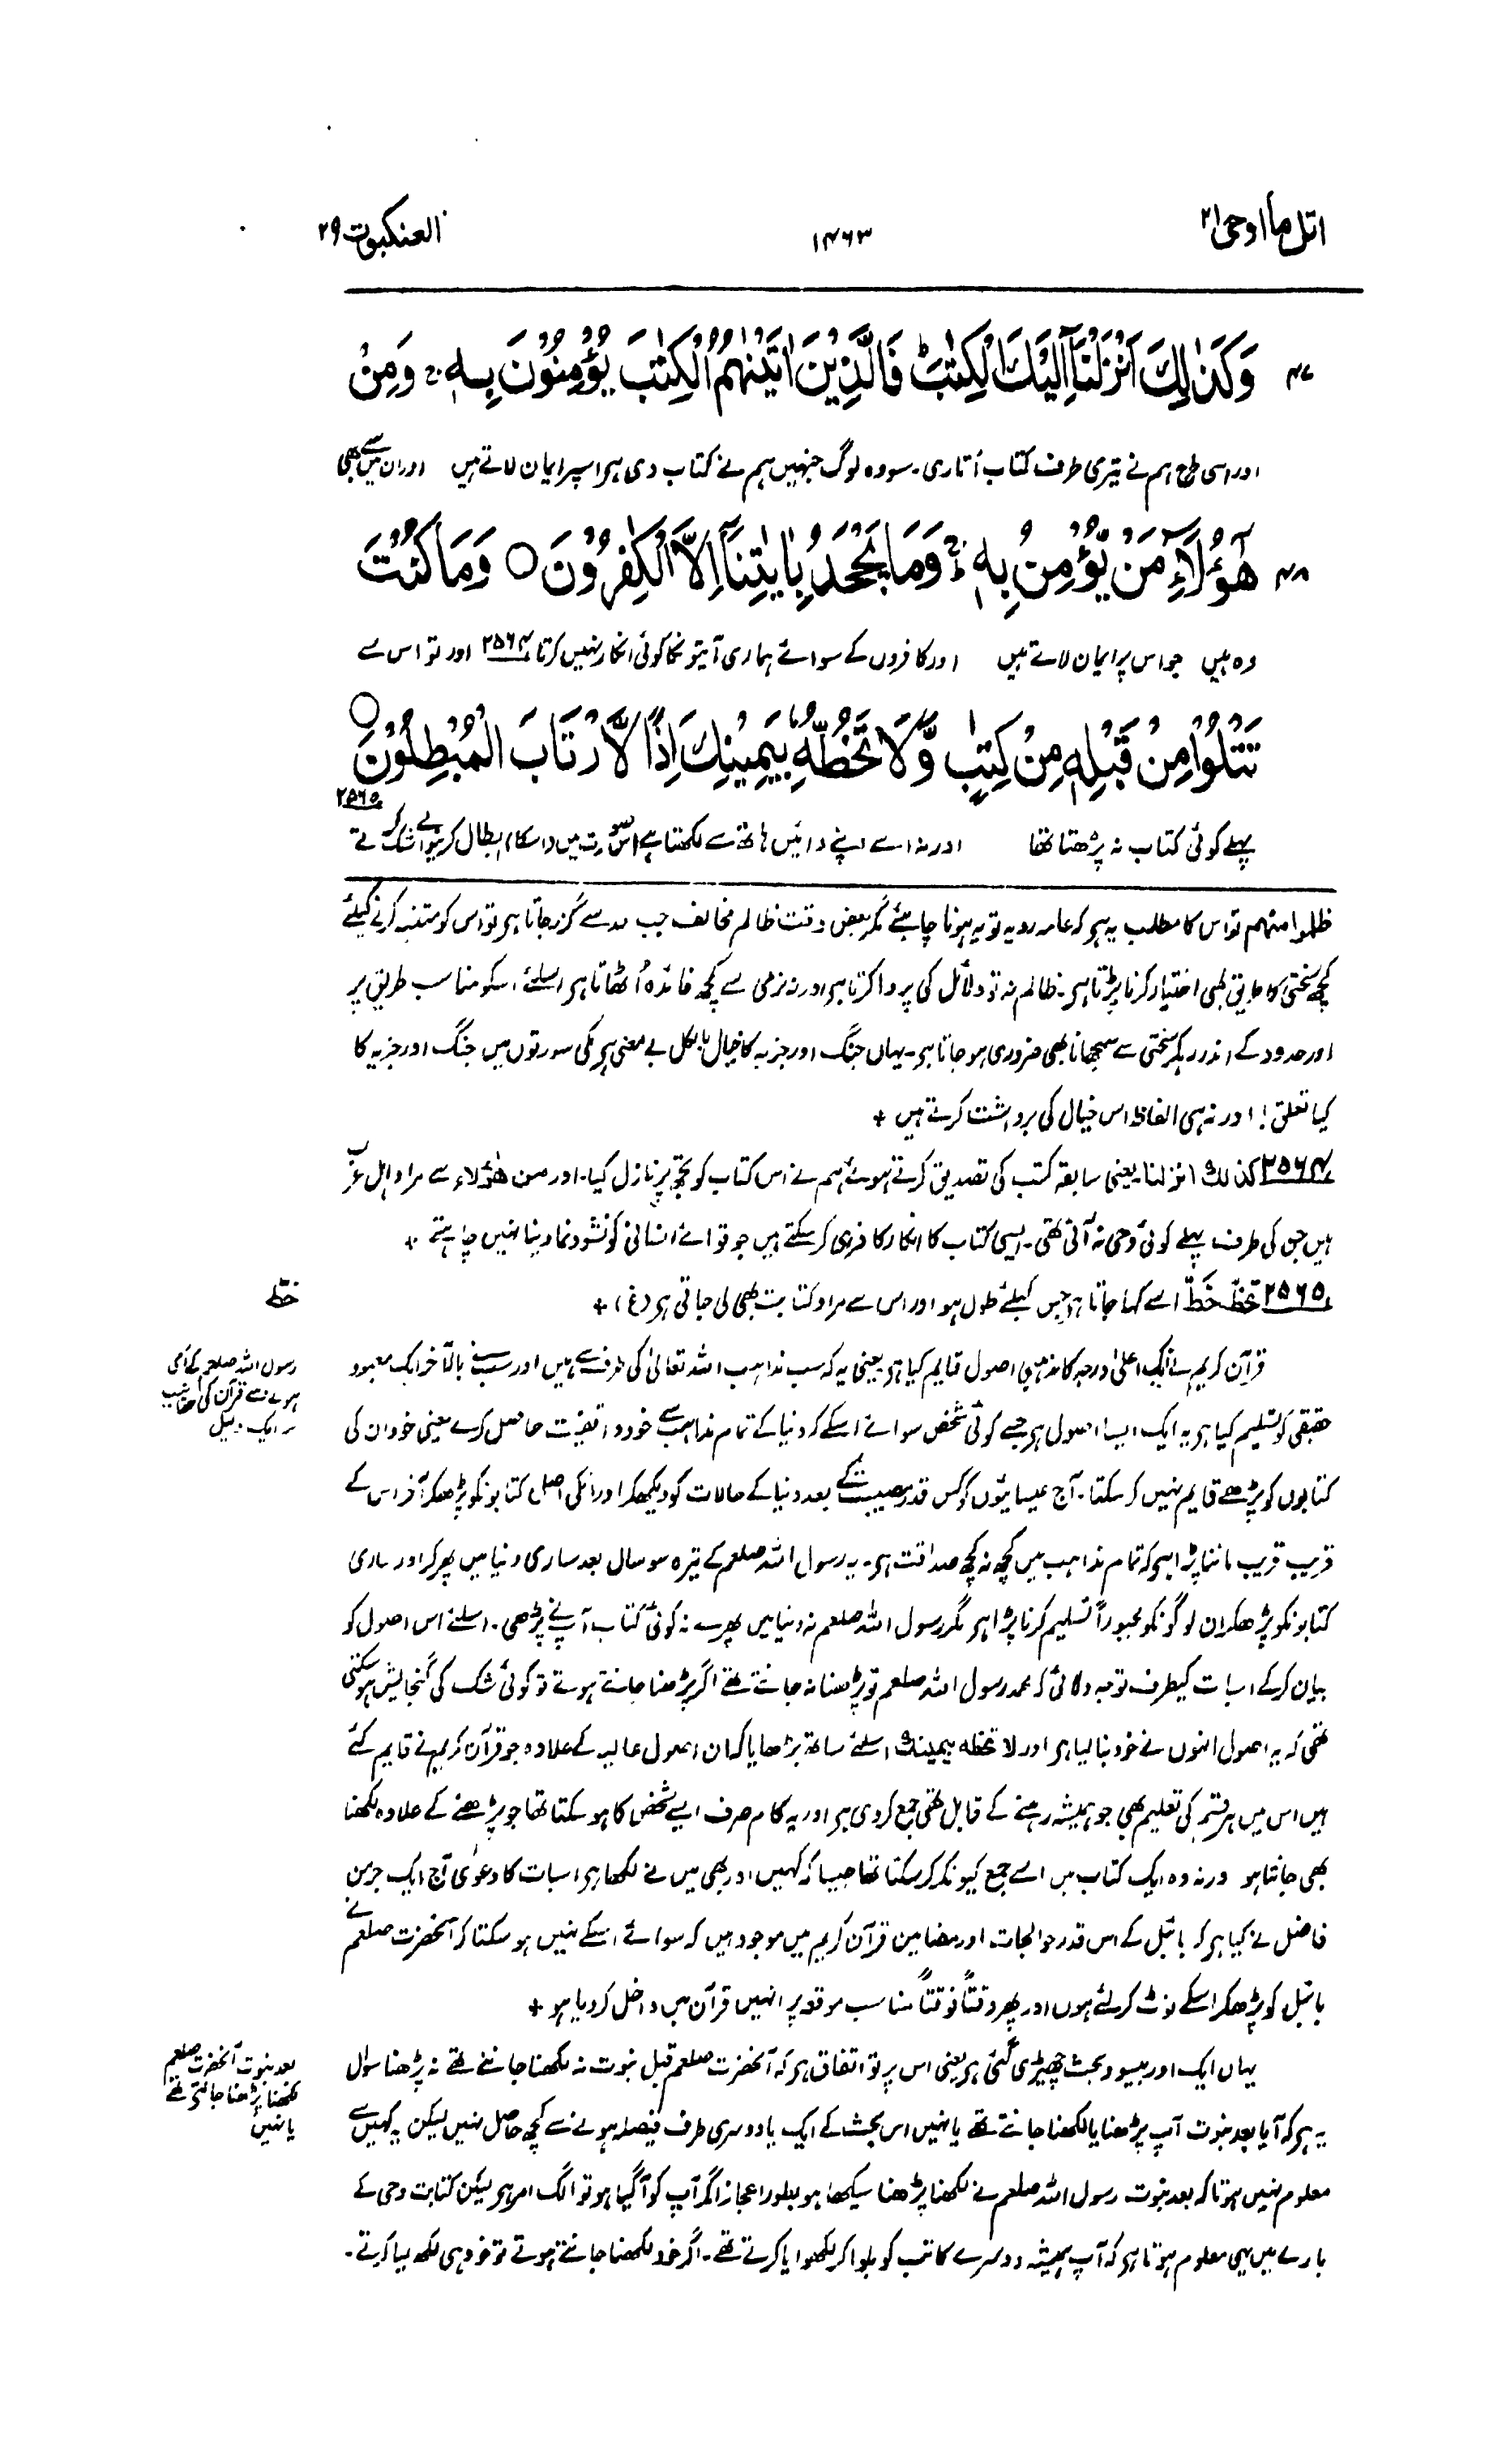 اتل ما اوحی ۲۱
۱۴۶۳
العنکبوت ۲۹
۴۷ وَكَذٰلِكَ اَنْزَلْنَآ اِلَيْكَ الْكِتٰبَ ؕ فَالَّذِيْنَ اٰتَيْنٰهُمُ الْكِتٰبَ يُؤْمِنُوْنَ بِهٖ ۚ وَمِنْ
اور اسی طرح ہم نے تیری طرف کتاب اُتاری۔ سو وہ لوگ جنہیں ہم نے کتاب دی ہر اسپر ایمان لاتے ہیں اور ان میں سے بھی
۴۸ هٰٓؤُلَآءِ مَنْ يُّؤْمِنُ بِهٖ ؕ وَمَا يَجْحَدُ بِاٰيٰتِنَآ اِلَّا الْكٰفِرُوْنَ ○ وَمَا كُنْتَ
وہ ہیں جو اس پر ایمان لاتے ہیں اور کافروں کے سوائے ہماری آیتونکا کوئی انکار نہیں کرتا ۲۵۶۴ اور تو اس سے
تَتْلُوْا مِنْ قَبْلِهٖ مِنْ كِتٰبٍ وَّلَا تَخُطُّهٗ بِيَمِيْنِكَ اِذًا لَّارْتَابَ الْمُبْطِلُوْنَ ○
۲۵۶۵
پہلے کوئی کتاب نہ پڑھتا تھا اور نہ اسے اپنے دائیں ہاتھ سے لکھتا ہے اس صورت میں (اسکا) ابطال کرنیوالے شک کرتے
ظلموا منہم تو اس کا مطلب یہ ہر کہ عام رویہ تو یہ ہونا چاہئے مگر بعض وقت ظالم مخالف جب حد سے گزر جاتا ہر تو اس کو متنبہ کرنے کیلئے
کچھ سختی کا طریق بھی اختیار کرنا پڑتا ہر۔ ظالم نہ تو دلائل کی پروا کرتا ہر اور نہ نرمی سے کچھ فائدہ اُٹھاتا ہر اسلئے اسکو مناسب طریق پر
اور حدود کے اندر رہکر سختی سے سمجھانا بھی ضروری ہو جاتا ہر۔ یہاں جنگ اور جزیہ کا خیال بالکل بے معنی ہر مکی سورتوں میں جنگ اور جزیہ کا
کیا تعلق! اور نہ ہی الفاظ اس خیال کی برداشت کرتے ہیں +
۲۵۶۴ کذلك انزلنا۔ یعنی سابقہ کتب کی تصدیق کرتے ہوئے ہم نے اس کتاب کو تجھ پر نازل کیا۔ اور من ھٰؤلاء سے مراد اہل عرب
ہیں جن کی طرف پہلے کوئی وحی نہ آئی تھی۔ ایسی کتاب کا انکار کافر ہی کر سکتے ہیں جو قوائے انسانی کو نشوونما دینا نہیں چاہتے +
۲۵۶۵ تخطّ خَطّ اسے کہا جاتا ہر جس کیلئے طول ہو اور اس سے مراد کتابت بھی لی جاتی ہر (غ) +
خطّ
قرآن کریم نے ایک اعلیٰ درجہ کا مذہبی اصول قایم کیا ہر یعنی یہ کہ سب مذاہب اللہ تعالیٰ کی طرف سے ہیں اور سب نے بالآخر ایک معبود
رسول اللہ صلعم کے اُمی
ہونے سے قرآن کی
پر ایک دلیل
حقیقی کو تسلیم کیا ہر یہ ایک ایسا اصول ہر جسے کوئی شخص سوائے اسکے کہ دنیا کے تمام مذاہب سے خود واقفیت حاصل کرے یعنی خود ان کی
کتابوں کو پڑھے قایم نہیں کر سکتا۔ آج عیسائیوں کو کس قدر مصیبت کے بعد دنیا کے حالات کو دیکھکر اور انکی اصل کتابونکو پڑھکر آخر اس کے
قریب قریب ماننا پڑا ہر کہ تمام مذاہب میں کچھ نہ کچھ صداقت ہر۔ یہ رسول اللہ صلعم کے تیرہ سو سال بعد ساری دنیا میں پھر کر اور ساری
کتابونکو پڑھکر ان لوگونکو مجبوراً تسلیم کرنا پڑا ہر مگر رسول اللہ صلعم نہ دنیا میں پھرے نہ کوئی کتاب آپ نے پڑھی۔ اسلئے اس اصول کو
بیان کرکے اسبات کیطرف توجہ دلائی کہ محمد رسول اللہ صلعم تو پڑھنا نہ جانتے تھے اگر پڑھنا جانتے ہوتے تو کوئی شک کی گنجایش ہو سکتی
تھی کہ یہ اصول انہوں نے خود بنا لیا ہر اور لا تخطہ بیمینك اسلئے ساتھ بڑھایا کہ ان اصول عالیہ کے علاوہ جو قرآن کریم نے قایم کئے
ہیں اس میں ہر قسم کی تعلیم بھی جو ہمیشہ رہنے کے قابل تھی جمع کردی ہر اور یہ کام صرف ایسے شخص کا ہو سکتا تھا جو پڑھنے کے علاوہ لکھنا
بھی جانتا ہو ورنہ وہ ایک کتاب میں اسے جمع کیونکر کر سکتا تھا جیسا کہ کہیں اور بھی میں نے لکھا ہر اسبات کا دعویٰ آج ایک جرمن
فاضل نے کیا ہر کہ بائبل کے اس قدر حوالجات اور مضامین قرآن کریم میں موجود ہیں کہ سوائے اسکے نہیں ہو سکتا کہ آنحضرت صلعم نے
بائبل کو پڑھکر اسکے نوٹ کر لئے ہوں اور پھر وقتاً فوقتاً مناسب موقعہ پر انہیں قرآن میں داخل کر دیا ہو +
یہاں ایک اور بیسود بحث چھیڑی گئی ہر یعنی اس پر تو اتفاق ہر کہ آنحضرت صلعم قبل نبوت نہ لکھنا جانتے تھے نہ پڑھنا سوال
بعد نبوت آنحضرت صلعم
لکھنا پڑھنا جانتے تھے
یا نہیں
یہ ہر کہ آیا بعد نبوت آپ پڑھنا یا لکھنا جانتے تھے یا نہیں اس بحث کے ایک یا دوسری طرف فیصلہ ہونے سے کچھ حاصل نہیں لیکن یہ کہیں سے
معلوم نہیں ہوتا کہ بعد نبوت رسول اللہ صلعم نے لکھنا پڑھنا سیکھا ہو بطور اعجاز اگر آپ کو آ گیا ہو تو الگ امر ہر لیکن کتابت وحی کے
بارے میں یہی معلوم ہوتا ہر کہ آپ ہمیشہ دوسرے کاتب کو بلوا کر لکھوایا کرتے تھے۔ اگر خود لکھنا جانتے ہوتے تو خود ہی لکھ لیا کرتے۔